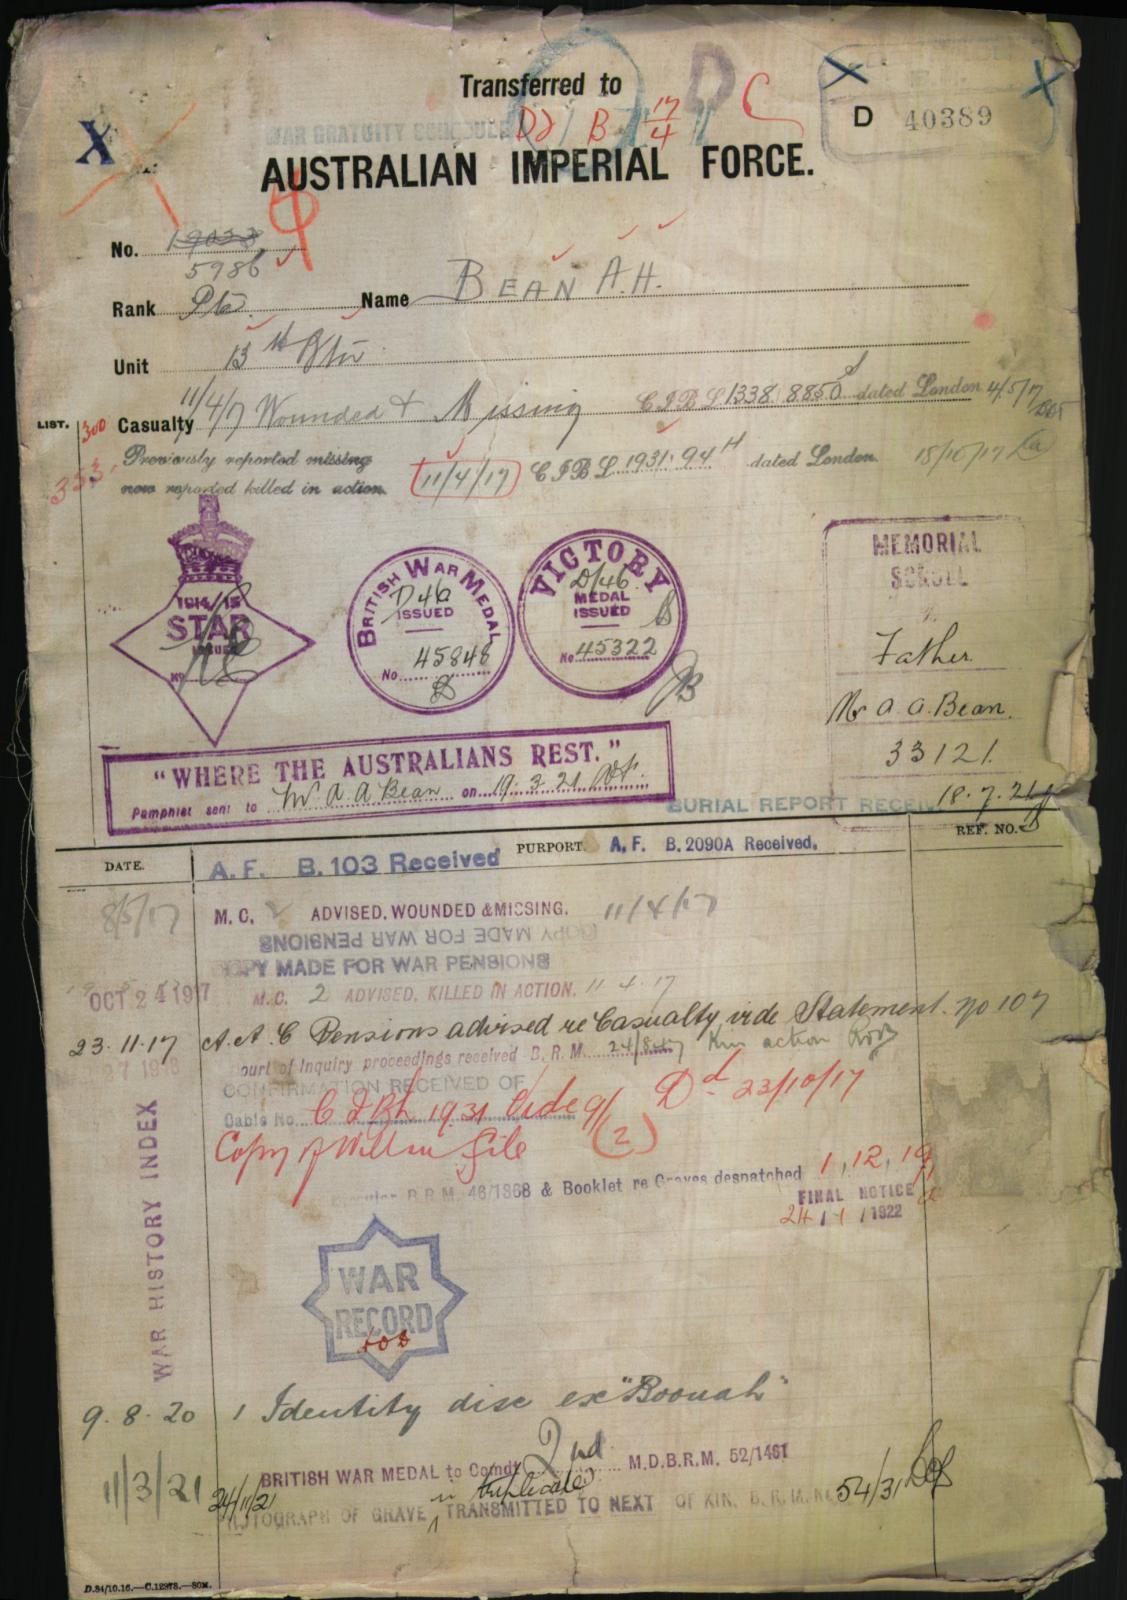 Transferred to
D C
WAR GRATUITY SCHEDULE B 17/4
D 40389
X
AUSTRALIAN IMPERIAL FORCE.
No. 19033
5986
Rank Pte. Name BEAN A.H.
Unit 13th Btn
Casualty 11/4/17 Wounded & Missing C.I.B L.1338. 8850 dated London 4/5/17
LIST. 300
Previously reported missing
now reported killed in action. 11/4/17 C I B L 1931. 94 H dated London. 18/10/17
353
1914/15
STAR
ISSUED
No
BRITISH WAR MEDAL
D46
ISSUED
No. 45848
VICTORY
D/46
MEDAL
ISSUED
No 45322
MEMORIAL
SCROLL
Father.
Mr A. A. Bean.
33121.
18.7.21
"WHERE THE AUSTRALIANS REST."
Pamphlet sent to Mr A A Bean on 19.3.21
BURIAL REPORT RECEIV
DATE. PURPORT. REF. NO.
A. F. B. 103 Received A. F. B. 2090A Received.
8/5/17 M. C. 2 ADVISED. WOUNDED & MISSING. 11/4/17
COPY MADE FOR WAR PENSIONS
COPY MADE FOR WAR PENSIONS
OCT 24 1917 M.C. 2 ADVISED. KILLED IN ACTION. 11 4 17
23.11.17 A.A.C Pensions advised re Casualty vide Statement. No 107
ourt of Inquiry proceedings received B. R. M. action
CONFIRMATION RECEIVED OF
Cable No. 1931 Dd 23/10/17
Copy of Will on file (2)
B.R.M. 46/1368 & Booklet re Graves despatched 1,12,19
FINAL NOTICE
24/1/1922
WAR HISTORY INDEX
WAR
RECORD
9.8.20 1 Identity disc ex "Boonah"
11/3/21 BRITISH WAR MEDAL to Comdt 2nd M.D.B.R.M. 52/1461
24/11/21 in duplicate
OTOGRAPH OF GRAVE TRANSMITTED TO NEXT OF KIN. B. R. M. 54/31
D.84/10.16.—C.12978.—80M.